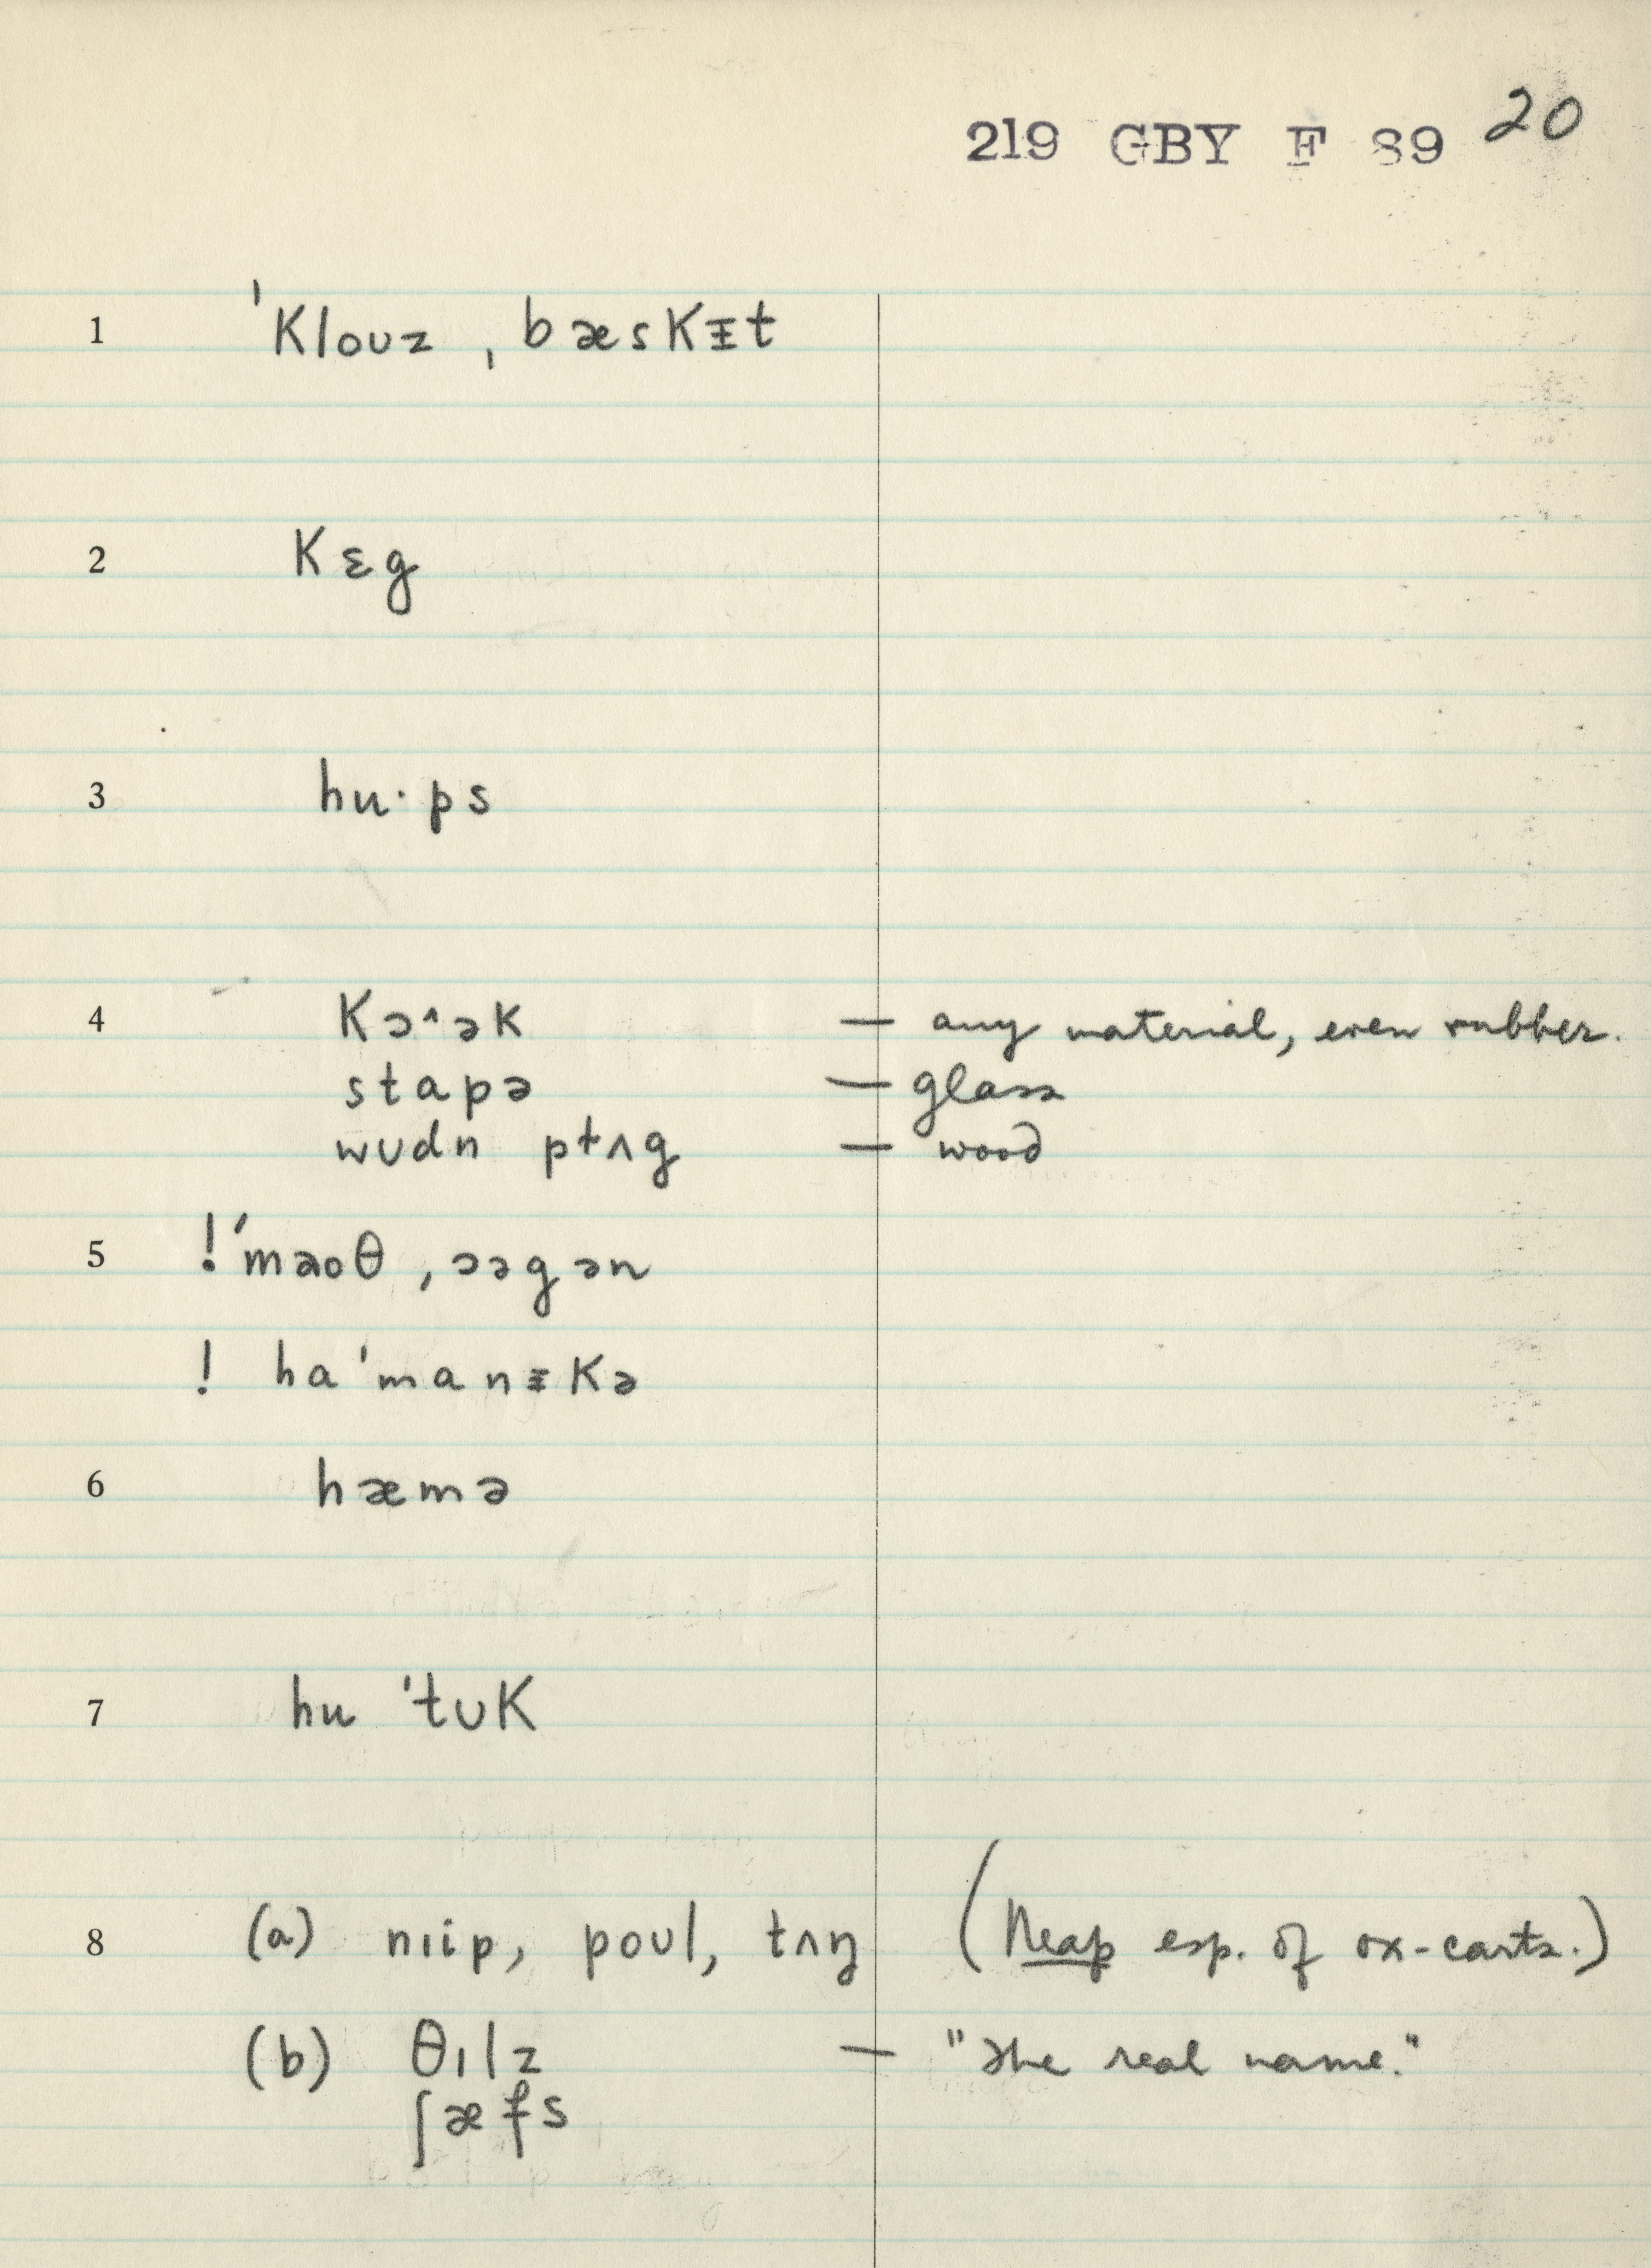 219 GBY F 89 20
1 ˈklouz ˌbæskɪ̵t
2 kɛg
3 hu·ps
4 kɔ˄ək — any material, even rubber.
stapə — glass
wudn plʌg — wood
5 ! ˈmaoθ ˌɔəgən
! haˈmanɪ̵kə
6 hæmə
7 hu ˈtuk
8 (a) nɪip, poul, tʌŋ (Neap esp. of ox-carts.)
(b) θɪlz — "The real name."
ʃæfs